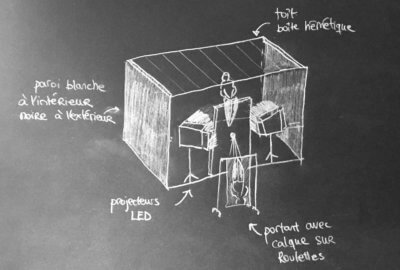 toit
boîte hermétique
paroi blanche
à l'intérieur
noire à l'extérieur
projecteurs
LED
portant avec
calque sur
Roulettes